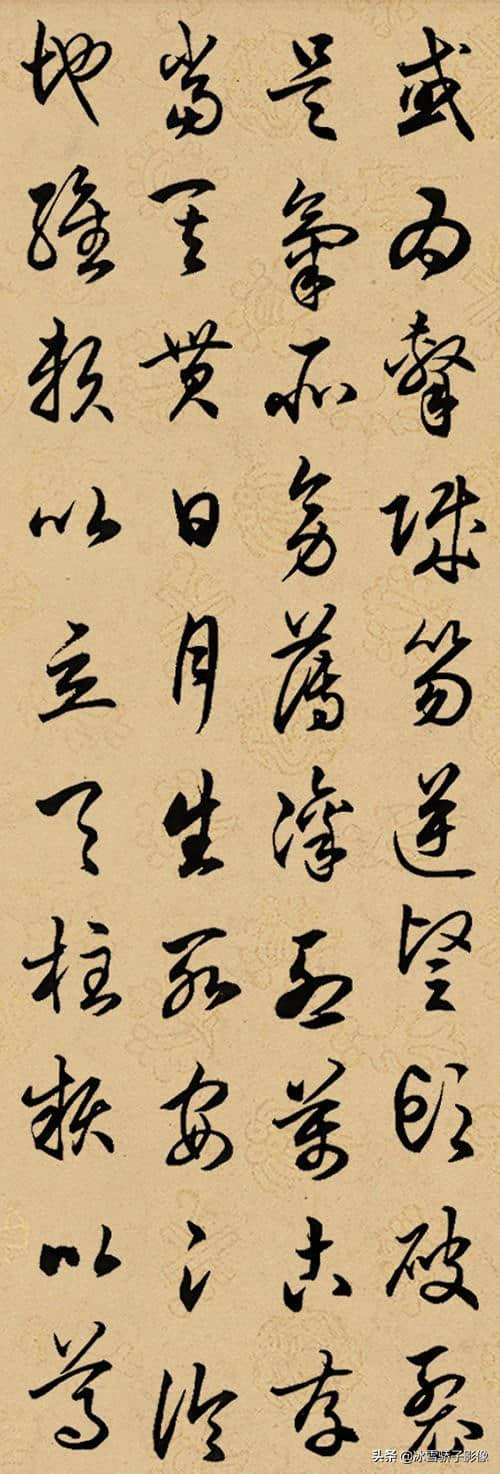 或为擊贼笏逆豎頭破裂
是氣所旁薄凜烈萬古存
當其貫日月生死安足論
地維賴以立天柱賴以尊
头条 @冰雪骄子影像